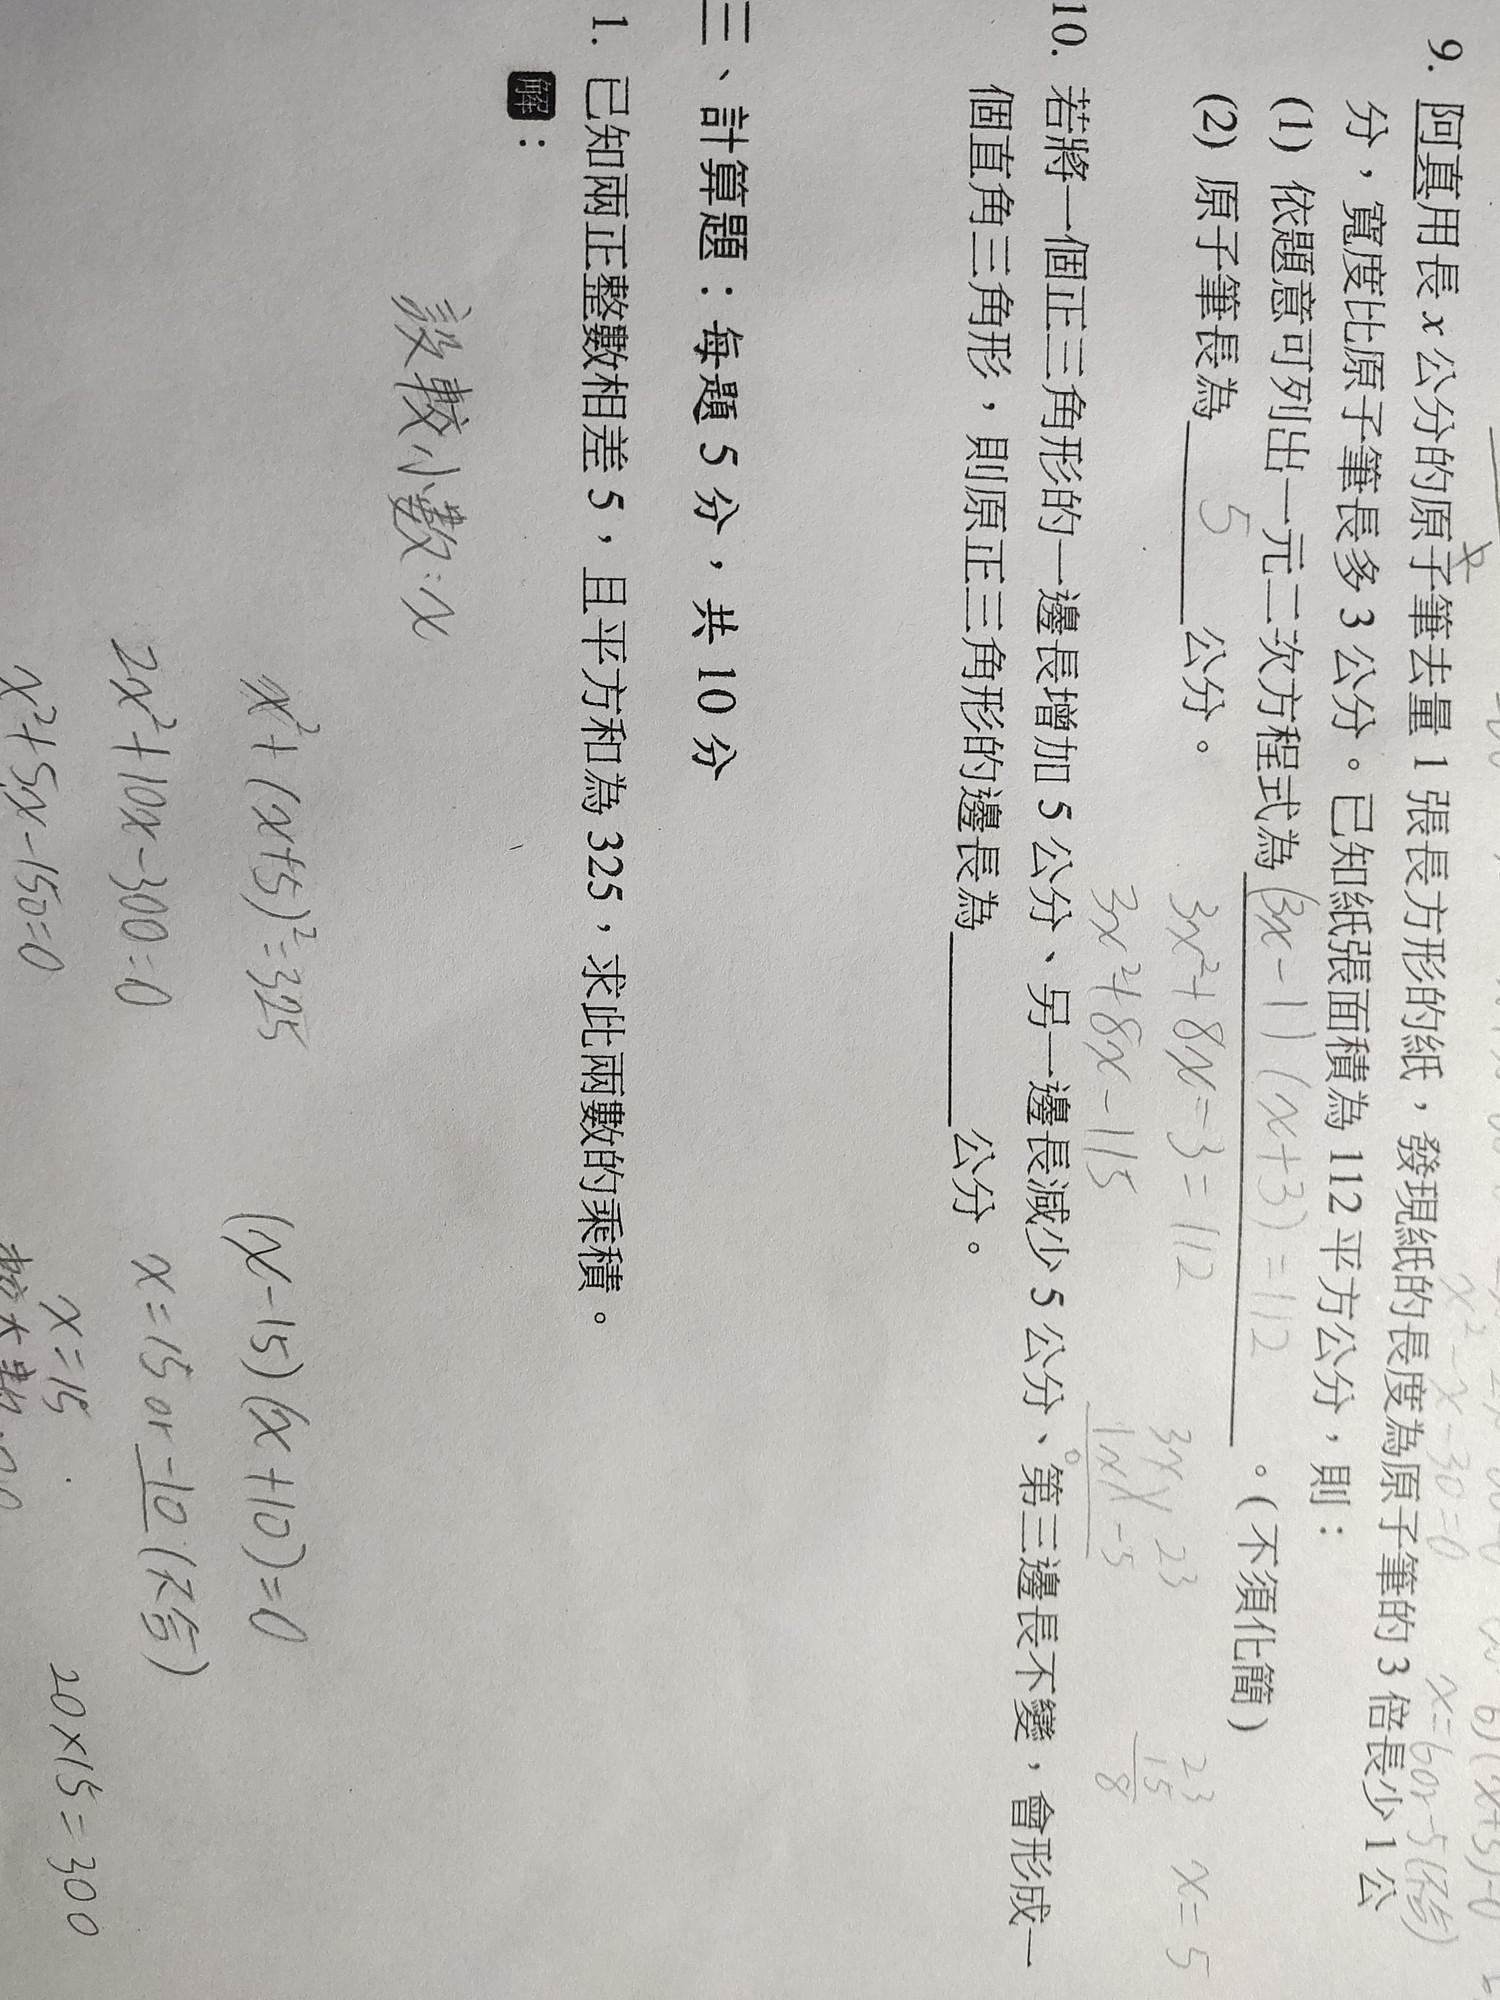 9. 阿真用長 x 公分的原子筆去量 1 張長方形的紙，發現紙的長度為原子筆的 3 倍長少 1 公
分，寬度比原子筆長多 3 公分。已知紙張面積為 112 平方公分，則：
(1) 依題意可列出一元二次方程式為 (3x-1)(x+3)=112 。(不須化簡)
(2) 原子筆長為 5 公分。
3x²+8x-3=112
3x²+8x-115
3x 23
1x -5
23
15
8
x=5
x²-x-30=0
x=6or-5(不合)
10. 若將一個正三角形的一邊長增加 5 公分、另一邊長減少 5 公分、第三邊長不變，會形成一
個直角三角形，則原正三角形的邊長為 公分。
三、計算題：每題 5 分，共 10 分
1. 已知兩正整數相差 5，且平方和為 325，求此兩數的乘積。
解：
設較小數:x
x²+(x+5)²=325
2x²+10x-300=0
x²+5x-150=0
(x-15)(x+10)=0
x=15 or -10 (不合)
x=15
20×15=300